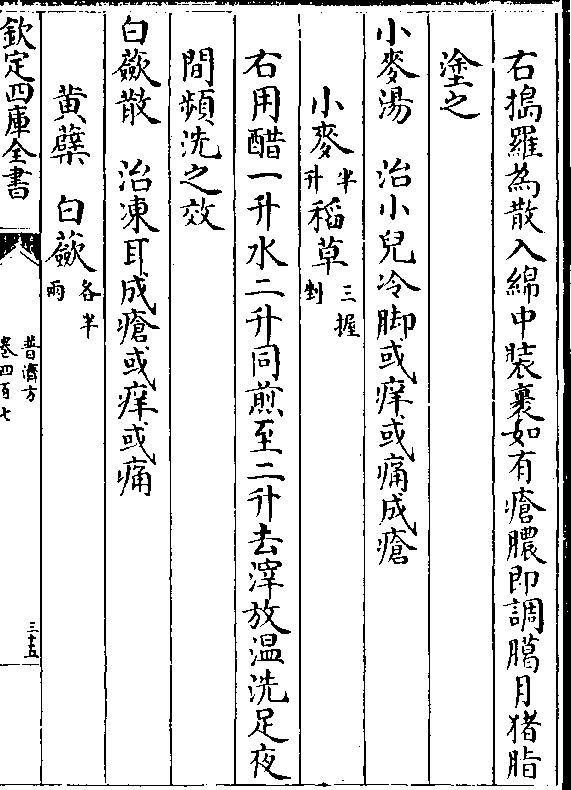 右搗羅為散入綿中裝裹如有瘡膿即調臈月猪脂
塗之
小麥湯　治小兒冷脚或痒或痛成瘡
小麥半升稻草三握剉
右用醋一升水二升同煎至二升去滓放温洗足夜
間頻洗之效
白蘞散　治凍耳成瘡或痒或痛
黄蘗　白蘞各半兩
欽定四庫全書
普濟方
卷四百七
三十五